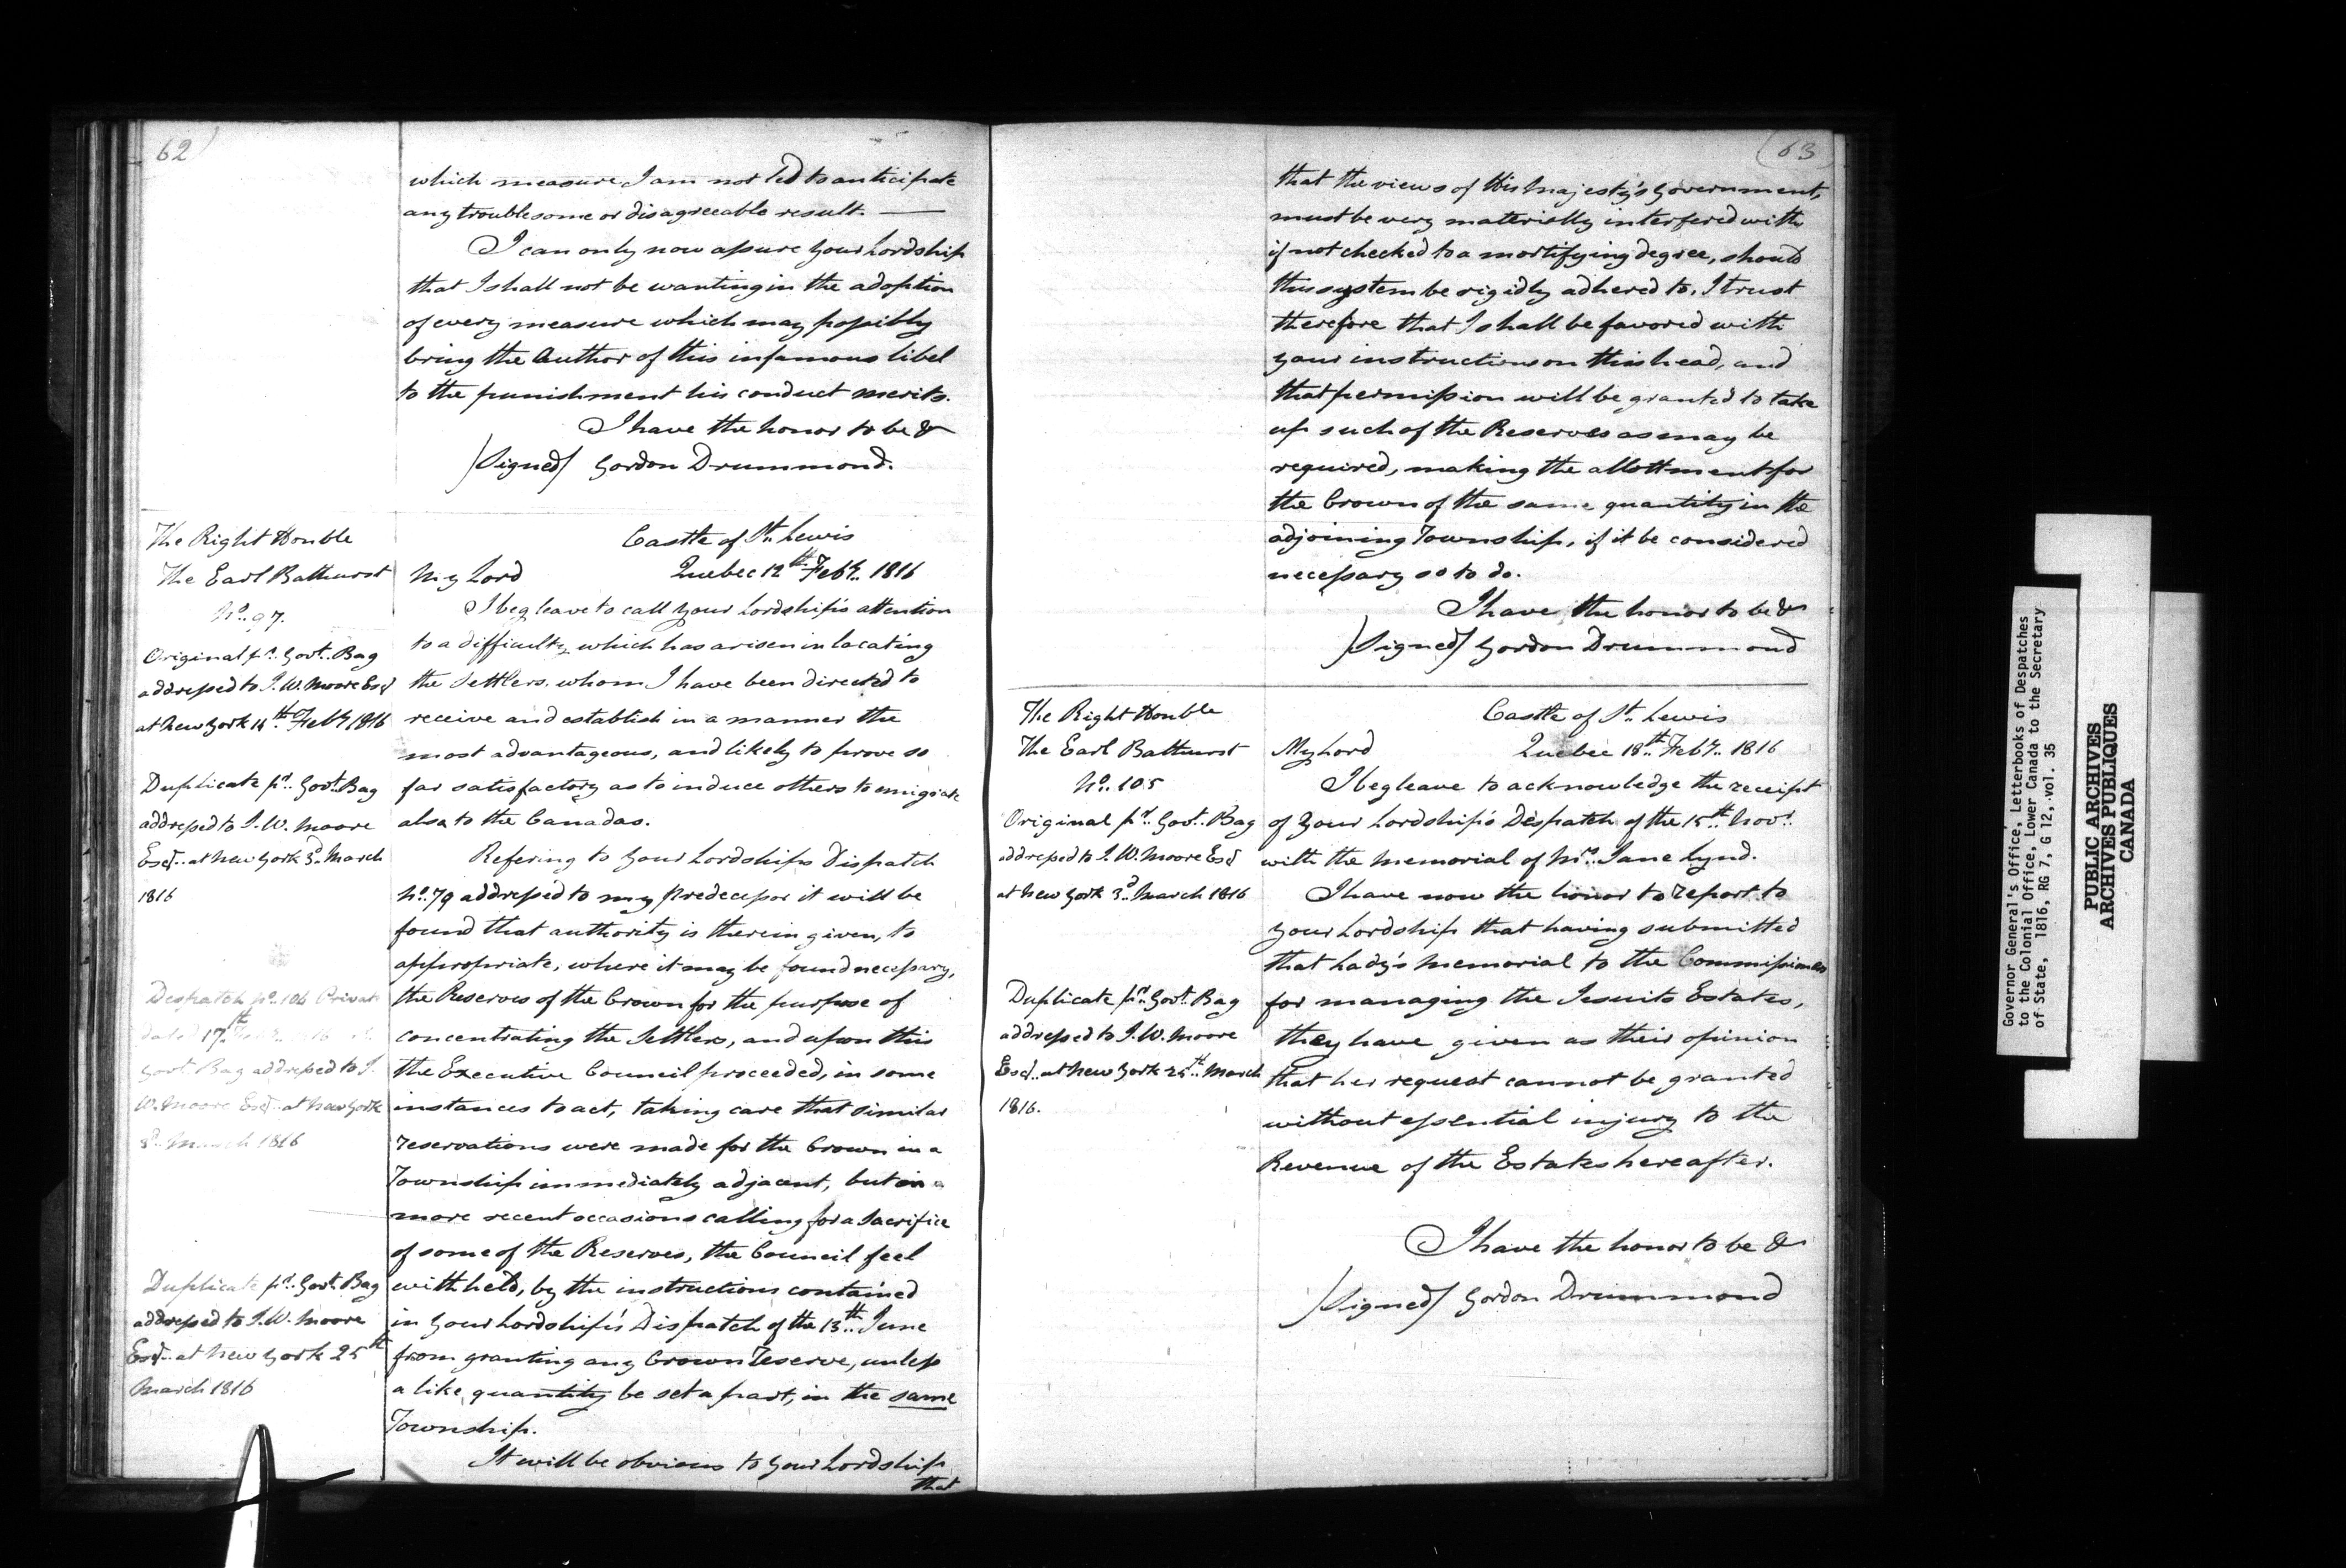 62
which measure I am not led to anticipate
any troublesome or disagreeable result. —
I can only now assure Your Lordship
that I shall not be wanting in the adoption
of every measure which may possibly
bring the Author of this infamous libel
to the punishment his conduct merits.
I have the honor to be &
/Signed/ Gordon Drummond.
The Right Honble
The Earl Bathurst
No. 97.
Original pr. Govt. Bag
addressed to I. W. Moore Esqr
at New York 14th Feby 1816
Duplicate pr. Govt. Bag
addressed to I. W. Moore
Esqr. at New York 3d March
1816
Despatch No. 106 Private
dated 17th
Govt Bag addressed to I.
W. Moore Esqr. at New York
March 1816
Duplicate pr. Govt. Bag
addressed to I. W. Moore
Esqr. at New York 25th
March 1816
Castle of St. Lewis
My Lord Quebec 12th Feby. 1816
I beg leave to call Your Lordship's attention
to a difficulty which has arisen in locating
the Settlers, whom I have been directed to
receive and establish in a manner the
most advantageous, and likely to prove so
far satisfactory as to induce others to emigrate
also to the Canadas.
Refering to Your Lordships Dispatch
No. 79 addressed to my Predecessor it will be
found that authority is therein given, to
appropriate, where it may be found necessary,
the Reserves of the Crown for the purpose of
concentrating the Settlers, and upon this
the Executive Council proceeded, in some
instances to act, taking care that similar
reservations were made for the Crown in a
Township immediately adjacent, but on a
more recent occasions calling for a sacrifice
of some of the Reserves, the Council feel
withheld, by the instructions contained
in Your Lordship's Dispatch of the 13th June
from granting any Crown Reserve, unless
a like quantity be set apart, in the same
Township.
It will be obvious to Your Lordship
that
63
that the views of His Majesty's Government,
must be very materially interfered with
if not checked to a mortifying degree, should
this system be rigidly adhered to, I trust
therefore that I shall be favored with
your instructions on this head, and
that permission will be granted to take
up such of the Reserves as may be
required, making the allottment for
the Crown of the same quantity in the
adjoining Township, if it be considered
necessary so to do.
I have the honor to be &
/Signed/ Gordon Drummond
The Right Honble
The Earl Bathurst
No. 105
Original pr. Govt. Bag
addressed to I. W. Moore Esqr
at New York 3d March 1816
Duplicate pr. Govt. Bag
addressed to I. W. Moore
Esqr. at New York 25th March
1816.
Castle of St. Lewis
My Lord Quebec 18th Feby. 1816
I beg leave to acknowledge the receipt
of Your Lordship's Despatch of the 15th Novr.
with the Memorial of Mrs. Jane Lynd.
I have now the honor to report to
Your Lordship that having submitted
that Lady's Memorial to the Commissioners
for managing the Jesuits Estates,
they have given as their opinion
that her request cannot be granted
without essential injury to the
Revenue of the Estates hereafter.
I have the honor to be &
/Signed/ Gordon Drummond
Governor General's Office, Letterbooks of Despatches
to the Colonial Office, Lower Canada to the Secretary
of State, 1816, RG 7, G 12, vol. 35
PUBLIC ARCHIVES
ARCHIVES PUBLIQUES
CANADA